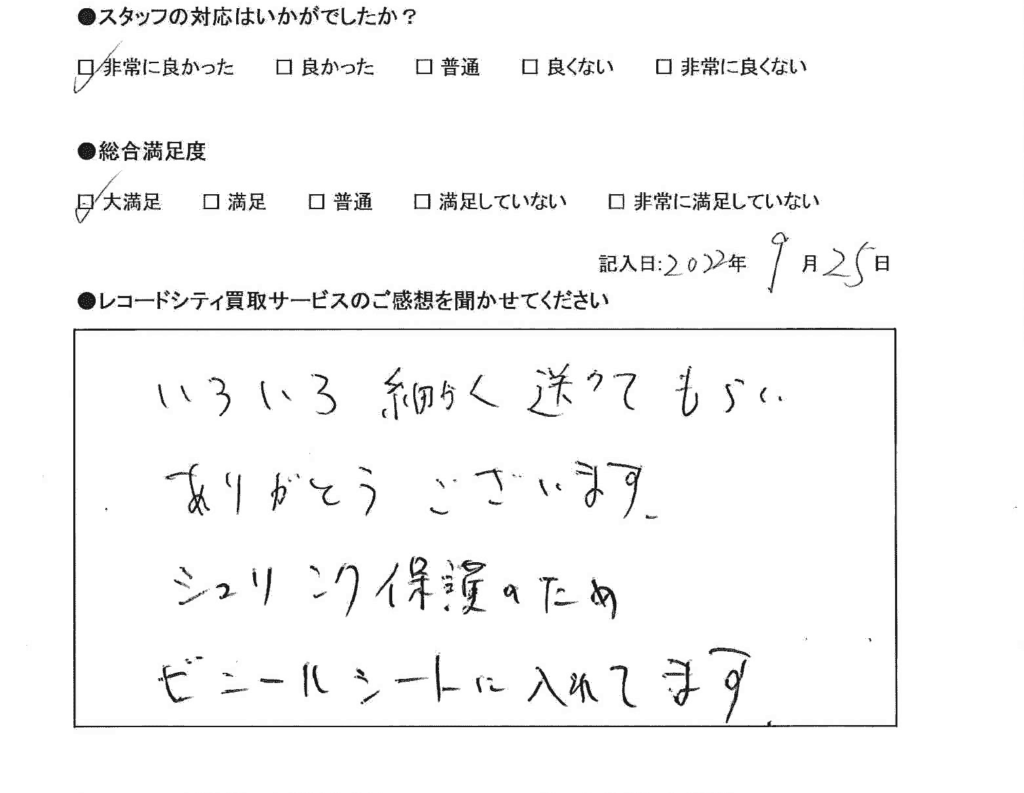 ●スタッフの対応はいかがでしたか？
□ 非常に良かった □ 良かった □ 普通 □ 良くない □ 非常に良くない
●総合満足度
□ 大満足 □ 満足 □ 普通 □ 満足していない □ 非常に満足していない
記入日:2022年 9月25日
●レコードシティ買取サービスのご感想を聞かせてください
いろいろ細かく送ってもらい
ありがとうございます.
シュリンク保護のため
ビニールシートに入れてます.